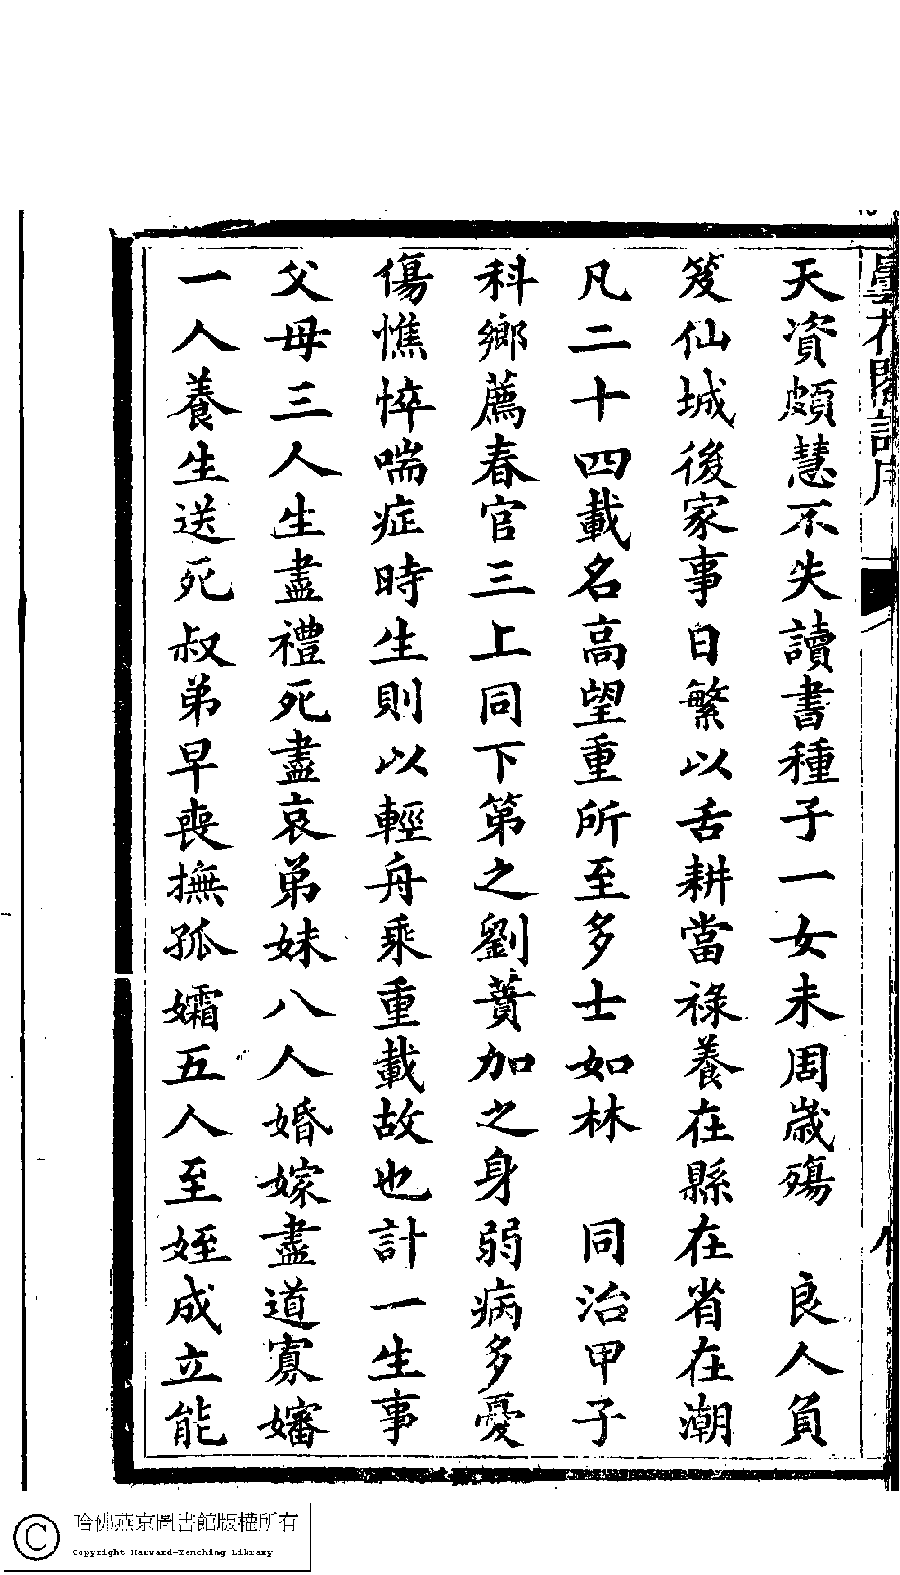 曇花閣詩序
天資頗慧不失讀書種子一女未周歲殤　良人負
笈仙城後家事日繁以舌耕當祿養在縣在省在潮
凡二十四載名高望重所至多士如林　同治甲子
科鄉薦春官三上同下第之劉蕡加之身弱病多憂
傷憔悴喘症時生則以輕舟乘重載故也計一生事
父母三人生盡禮死盡哀弟妹八人婚嫁盡道寡嬸
一人養生送死叔弟早喪撫孤孀五人至姪成立能
哈佛燕京圖書館版權所有
Copyright Harvard-Yenching Library